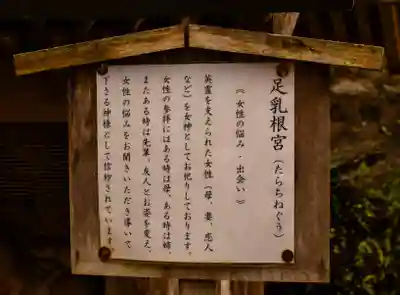 足乳根宮（たらちねぐう）
（女性の悩み・出会い）
英霊を支えられた女性（母、妻、恋人
など）を女神としてお祀りしております。
女性の参拝にはある時は母、ある時は姉、
またある時は先輩、友人とお姿を変え、
女性の悩みをお聞きいただき導いて
下さる神様として信仰されています